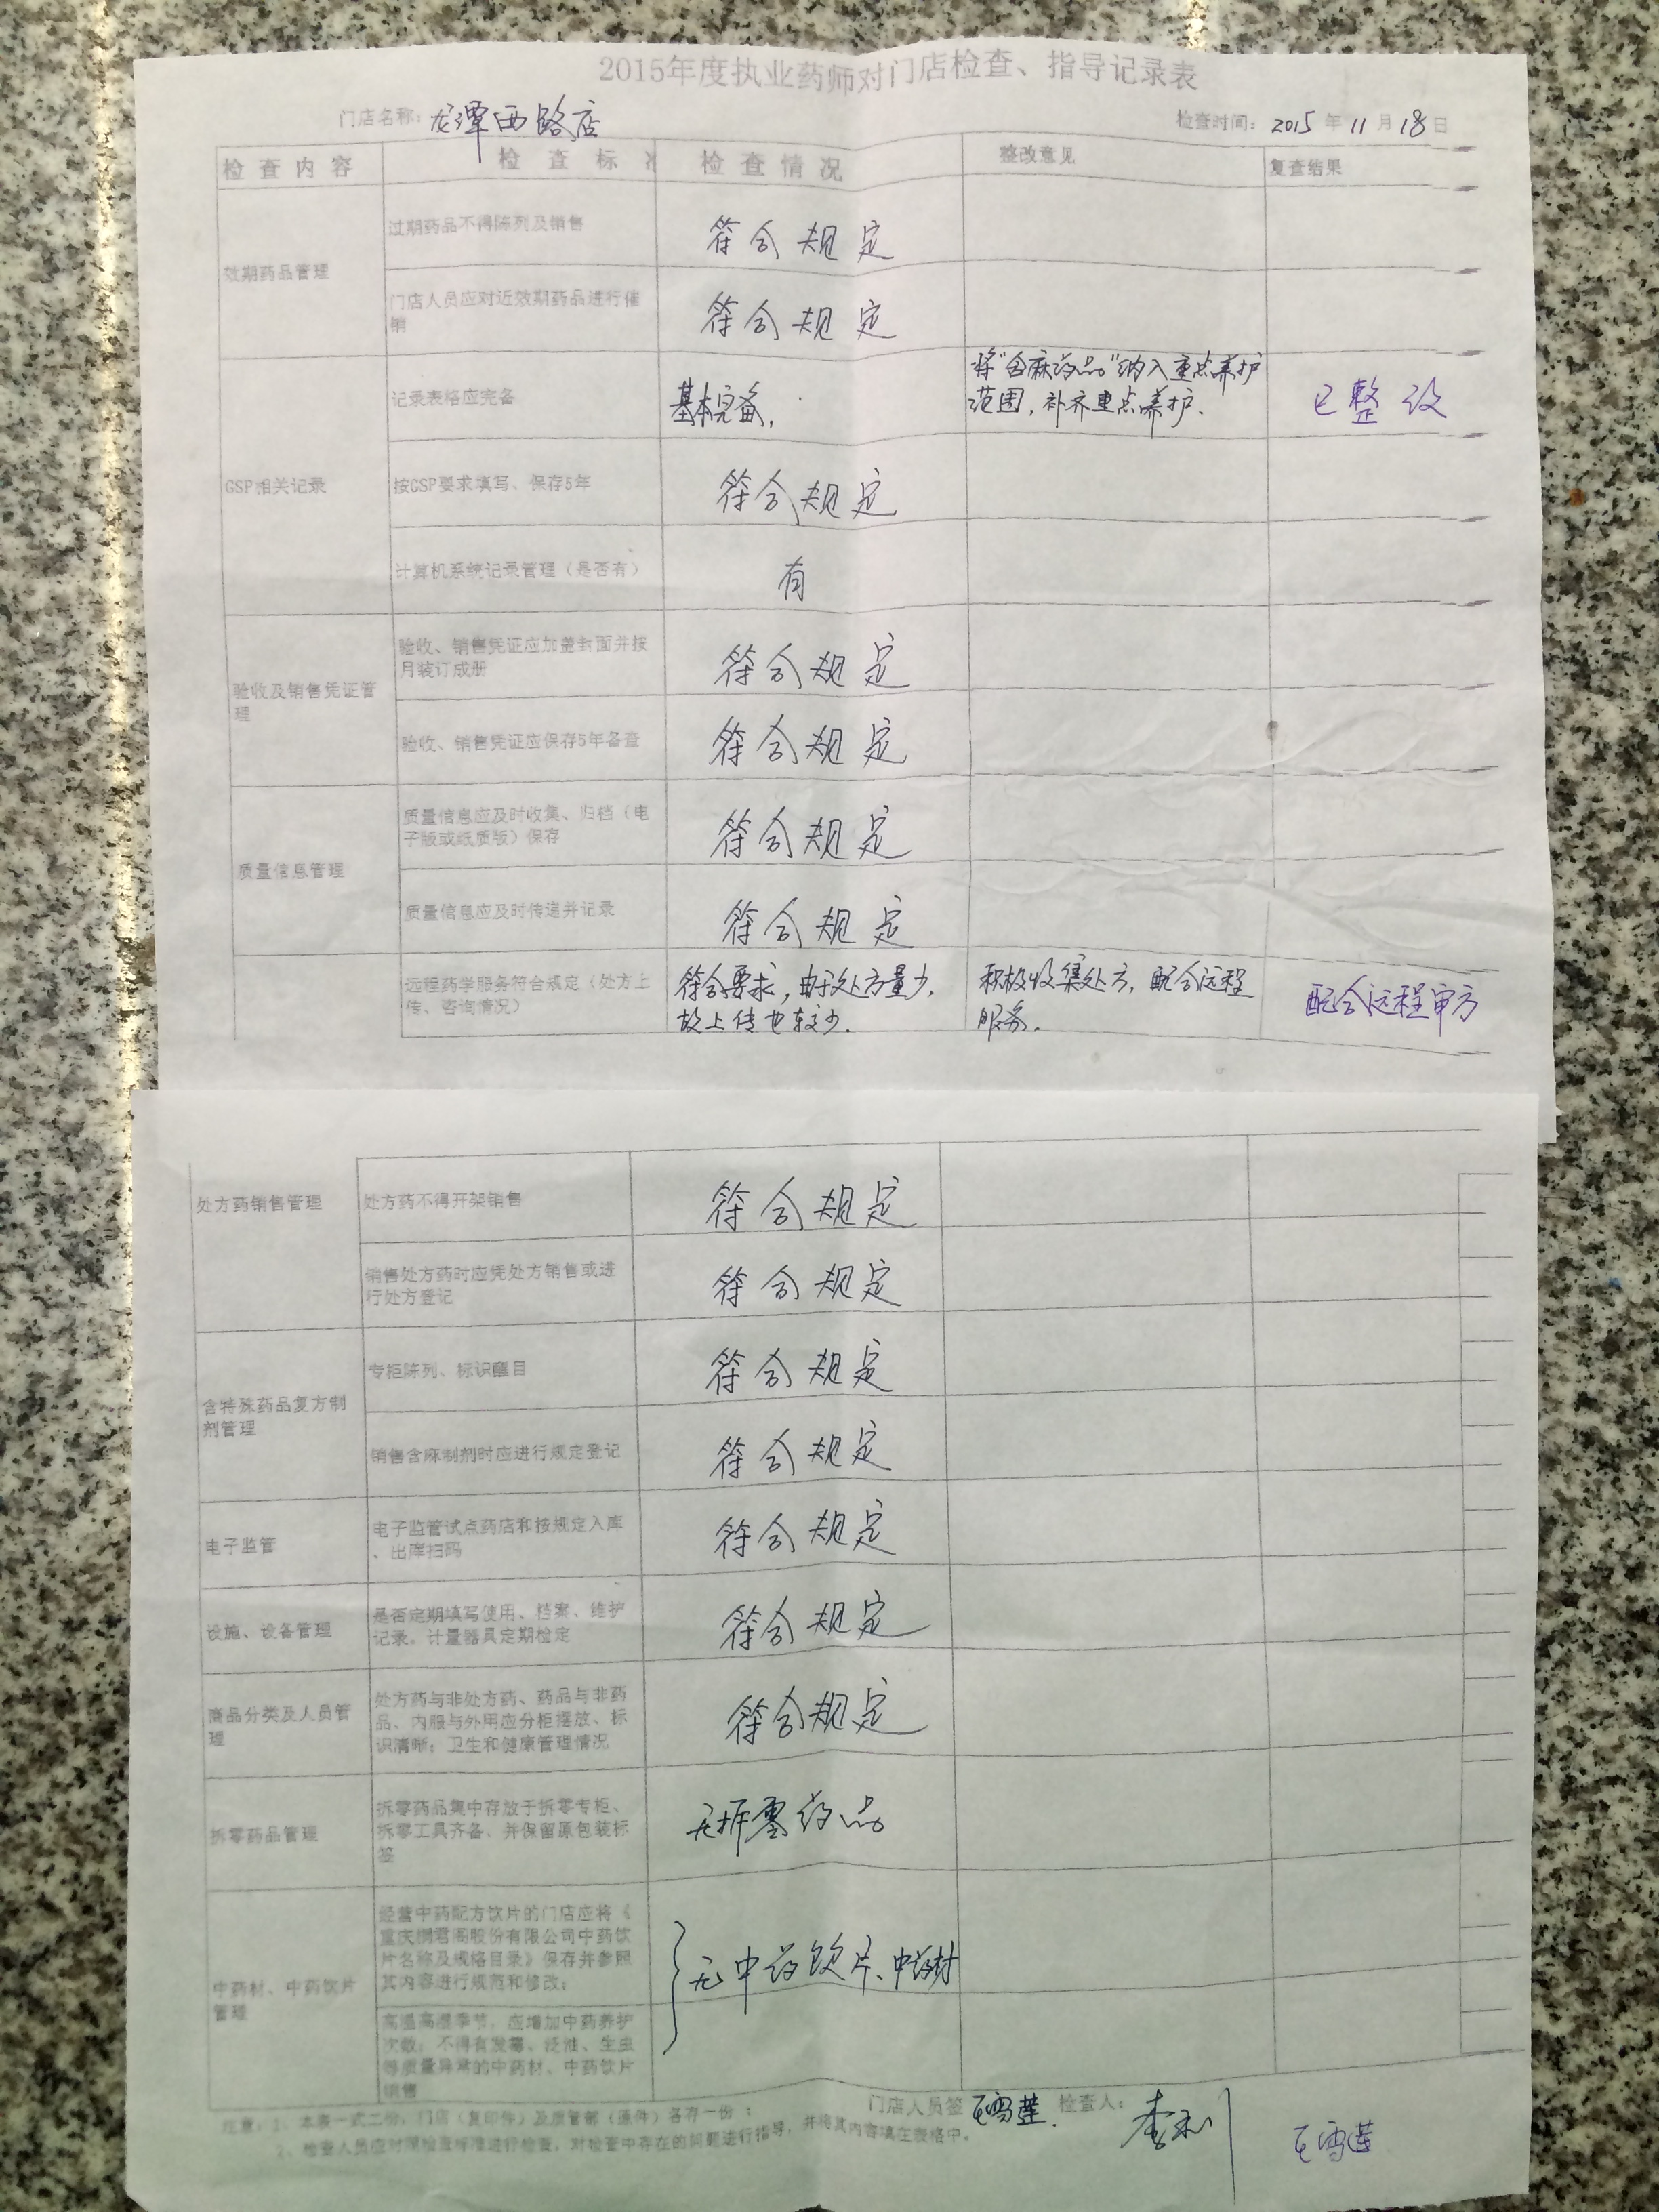 2015年度执业药师对门店检查、指导记录表
门店名称：龙潭西路店 检查时间：2015年11月18日
检查内容 检查标准 检查情况 整改意见 复查结果
效期药品管理
过期药品不得陈列及销售
符合规定
门店人员应对近效期药品进行催
销
符合规定
GSP相关记录
记录表格应完备
基本完备，
将“含麻药品”纳入重点养护
范围，补齐重点养护.
已整改
按GSP要求填写、保存5年
符合规定
计算机系统记录管理（是否有）
有
验收及销售凭证管
理
验收、销售凭证应加盖封面并按
月装订成册
符合规定
验收、销售凭证应保存5年备查
符合规定
质量信息管理
质量信息应及时收集、归档（电
子版或纸质版）保存
符合规定
质量信息应及时传递并记录
符合规定
远程药学服务符合规定（处方上
传、咨询情况）
符合要求，由于处方量少.
故上传也较少.
积极收集处方，配合远程
服务.
配合远程审方
处方药销售管理
处方药不得开架销售
符合规定
销售处方药时应凭处方销售或进
行处方登记
符合规定
含特殊药品复方制
剂管理
专柜陈列、标识醒目
符合规定
销售含麻制剂时应进行规定登记
符合规定
电子监管
电子监管试点药店和按规定入库
、出库扫码
符合规定
设施、设备管理
是否定期填写使用、档案、维护
记录。计量器具定期检定
符合规定
商品分类及人员管
理
处方药与非处方药、药品与非药
品、内服与外用应分柜摆放、标
识清晰；卫生和健康管理情况
符合规定
拆零药品管理
拆零药品集中存放于拆零专柜、
拆零工具齐备、并保留原包装标
签
无拆零药品
中药材、中药饮片
管理
经营中药配方饮片的门店应将《
重庆桐君阁股份有限公司中药饮
片名称及规格目录》保存并参照
其内容进行规范和修改；
无中药饮片、中药材
高温高湿季节，应增加中药养护
次数；不得有发霉、泛油、生虫
等质量异常的中药材、中药饮片
销售
门店人员签 检查人：
注意：1、本表一式二份，门店（复印件）及质管部（原件）各存一份；
2、检查人员应对照检查标准进行检查，对检查中存在的问题进行指导，并将其内容填在表格中。